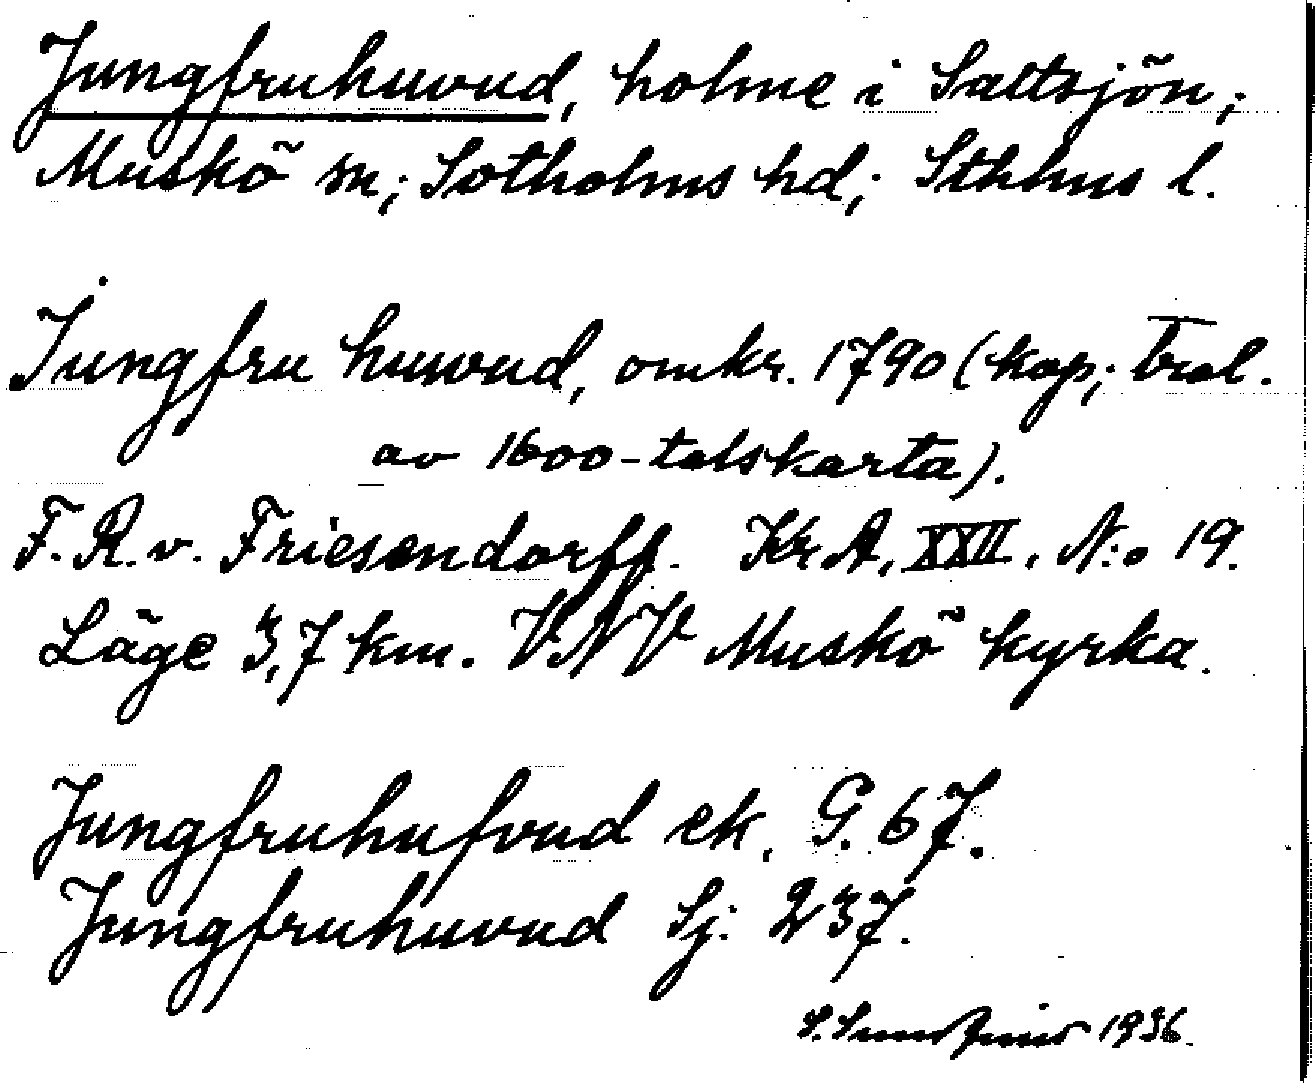 Jungfruhuvud, holme i Saltsjön;
Muskö sn; Sotholms hd; Sthlms l.
Jungfru huvud, omkr. 1790 (kop; trol.
av 1600-talskarta).
F. R. v. Friesendorff. Kr. A, XXII, N:o 19.
Läge 3,7 km. VNV Muskö kyrka.
Jungfruhufvud ek. G. 67.
Jungfruhuvud Sj. 237.
S. 1936.